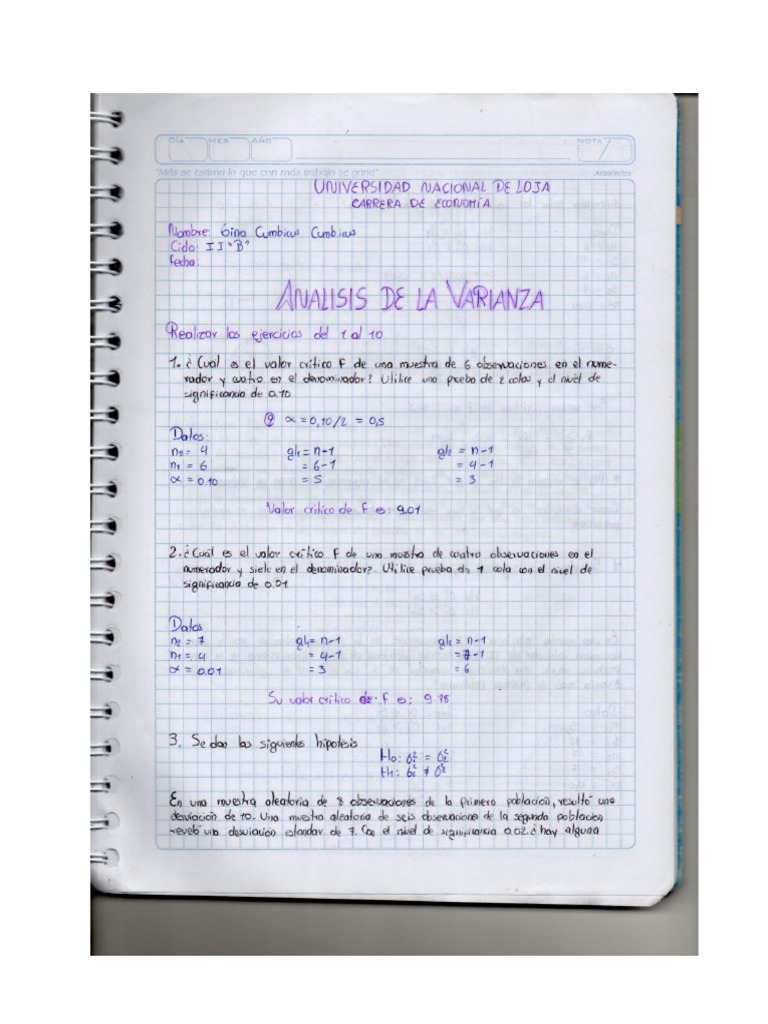 DÍA MES AÑO NOTA
"Más se estima lo que con más trabajo se gana"
UNIVERSIDAD NACIONAL DE LOJA
CARRERA DE ECONOMÍA
Nombre: Gina Cumbicus Cumbicus
Ciclo: II "B"
Fecha:
ANALISIS DE LA VARIANZA
Realizar los ejercicios del 1 al 10
1. ¿Cuál es el valor crítico F de una muestra de 6 observaciones en el nume-
rador y cuatro en el denominador? Utilice una prueba de 2 colas y el nivel de
significancia de 0.10
α = 0,10/2 = 0,5
Datos:
n2 = 4 gl1 = n-1 gl2 = n-1
n1 = 6 = 6-1 = 4-1
α = 0.10 = 5 = 3
Valor critico de F es: 9.01
2. ¿Cuál es el valor crítico F de una muestra de cuatro observaciones en el
numerador y siete en el denominador?. Utilice prueba de 1 cola con el nivel de
significancia de 0.01
Datos
n2 = 7 gl1 = n-1 gl2 = n-1
n1 = 4 = 4-1 = 7-1
α = 0.01 = 3 = 6
Su valor critico de F es: 9.78
3. Se dan las siguientes hipotesis
Ho: σ²₁ = σ²₂
H1: σ²₁ ≠ σ²₂
En una muestra aleatoria de 8 observaciones de la primera población, resultó una
desviación de 10. Una muestra aleatoria de seis observaciones de la segunda población
reveló una desviación estandar de 7. Con el nivel de significancia 0.02 ¿hay alguna